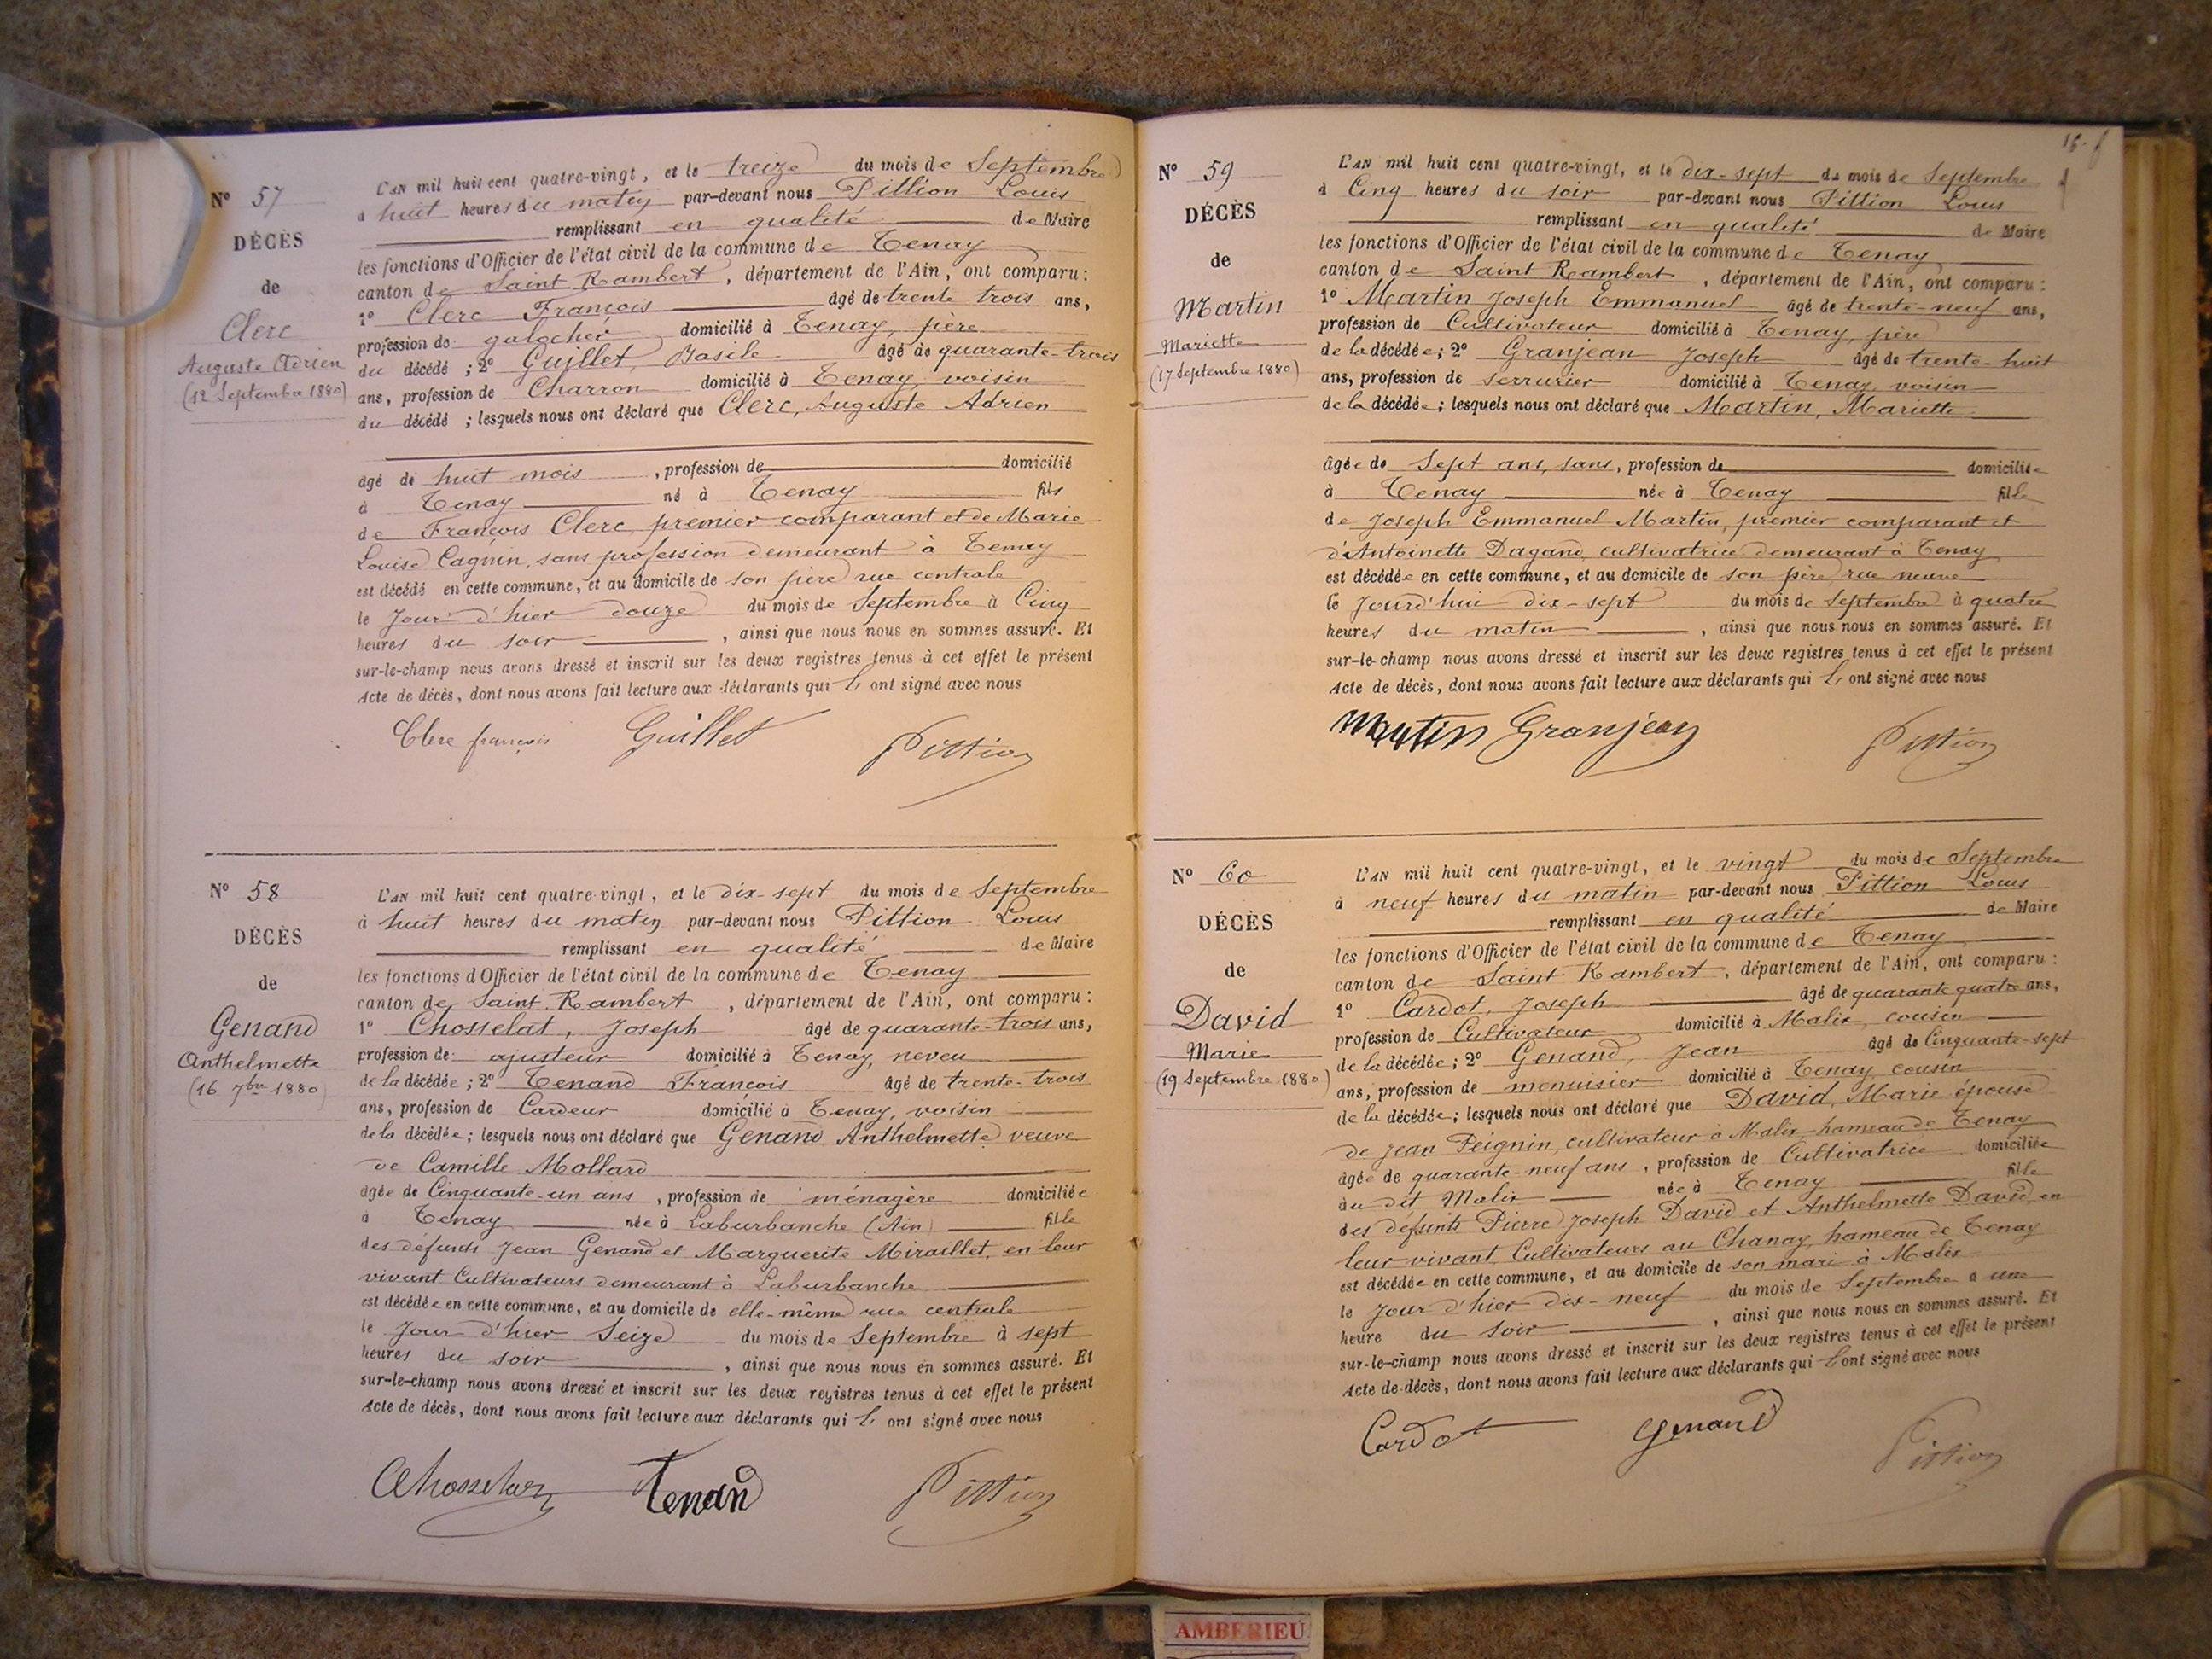 N° 57
DÉCÈS
de
Clerc
Auguste Adrien
(12 Septembre 1880)
L'AN mil huit cent quatre-vingt, et le treize du mois de Septembre
à huit heures du matin par-devant nous Pittion Louis
remplissant en qualité de Maire
les fonctions d'Officier de l'état civil de la commune de Tenay
canton de Saint Rambert, département de l'Ain, ont comparu:
1° Clerc François âgé de trente trois ans,
profession de galocher domicilié à Tenay, père
du décédé ; 2° Guillet, Basile âgé de quarante-trois
ans, profession de Charron domicilié à Tenay, voisin
du décédé ; lesquels nous ont déclaré que Clerc, Auguste Adrien
âgé de huit mois, profession de domicilié
à Tenay né à Tenay fils
de François Clerc, premier comparant et de Marie
Louise Cagnin, sans profession demeurant à Tenay
est décédé en cette commune, et au domicile de son père rue centrale
le jour d'hier douze du mois de Septembre à Cinq
heures du soir, ainsi que nous nous en sommes assuré. Et
sur-le-champ nous avons dressé et inscrit sur les deux registres tenus à cet effet le présent
Acte de décès, dont nous avons fait lecture aux déclarants qui ont signé avec nous
Clerc françois Guillet Pittion
N° 58
DÉCÈS
de
Genand
Anthelmette
(16 7bre 1880)
L'AN mil huit cent quatre-vingt, et le dix-sept du mois de Septembre
à huit heures du matin par-devant nous Pittion Louis
remplissant en qualité de Maire
les fonctions d'Officier de l'état civil de la commune de Tenay
canton de Saint Rambert, département de l'Ain, ont comparu:
1° Chosselat, Joseph âgé de quarante-trois ans,
profession de ajusteur domicilié à Tenay, neveu
de la décédée ; 2° Tenand François âgé de trente-trois
ans, profession de Cardeur domicilié à Tenay, voisin
de la décédée ; lesquels nous ont déclaré que Genand Anthelmette veuve
de Camille Mollard
âgée de Cinquante-un ans, profession de ménagère domiciliée
à Tenay née à Laburbanche (Ain) fille
des défunts Jean Genand et Marguerite Miraillet, en leur
vivant Cultivateurs demeurant à Laburbanche
est décédée en cette commune, et au domicile de elle-même rue centrale
le jour d'hier Seize du mois de Septembre à sept
heures du soir, ainsi que nous nous en sommes assuré. Et
sur-le-champ nous avons dressé et inscrit sur les deux registres tenus à cet effet le présent
Acte de décès, dont nous avons fait lecture aux déclarants qui ont signé avec nous
Tenand Pittion
16.
N° 59
DÉCÈS
de
Martin
Mariette
(17 Septembre 1880)
L'AN mil huit cent quatre-vingt, et le dix-sept du mois de Septembre
à Cinq heures du soir par-devant nous Pittion Louis
remplissant en qualité de Maire
les fonctions d'Officier de l'état civil de la commune de Tenay
canton de Saint Rambert, département de l'Ain, ont comparu:
1° Martin Joseph Emmanuel âgé de trente-neuf ans,
profession de Cultivateur domicilié à Tenay, père
de la décédée ; 2° Granjean Joseph âgé de trente-huit
ans, profession de serrurier domicilié à Tenay voisin
de la décédée ; lesquels nous ont déclaré que Martin, Mariette
âgée de Sept ans, sans, profession de domiciliée
à Tenay née à Tenay fille
de Joseph Emmanuel Martin, premier comparant et
d'Antoinette Dagand, cultivatrice demeurant à Tenay
est décédée en cette commune, et au domicile de son père, rue neuve
le jourd'hui dix-sept du mois de Septembre à quatre
heures du matin, ainsi que nous nous en sommes assuré. Et
sur-le-champ nous avons dressé et inscrit sur les deux registres tenus à cet effet le présent
Acte de décès, dont nous avons fait lecture aux déclarants qui ont signé avec nous
Martin Granjean Pittion
N° 60
DÉCÈS
de
David
Marie
(19 Septembre 1880)
L'AN mil huit cent quatre-vingt, et le vingt du mois de Septembre
à neuf heures du matin par-devant nous Pittion Louis
remplissant en qualité de Maire
les fonctions d'Officier de l'état civil de la commune de Tenay
canton de Saint Rambert, département de l'Ain, ont comparu:
1° Cardot, Joseph âgé de quarante quatre ans,
profession de Cultivateur domicilié à Malix, cousin
de la décédée ; 2° Genand, Jean âgé de Cinquante-sept
ans, profession de menuisier domicilié à Tenay cousin
de la décédée ; lesquels nous ont déclaré que David, Marie épouse
de Jean Peignin, cultivateur à Malix hameau de Tenay
âgée de quarante-neuf ans, profession de Cultivatrice domiciliée
au dit Malix née à Tenay fille
des défunts Pierre Joseph David et Anthelmette David, en
leur vivant Cultivateurs au Chanay, hameau de Tenay
est décédée en cette commune, et au domicile de son mari à Malix
le jour d'hier dix-neuf du mois de Septembre à une
heure du soir, ainsi que nous nous en sommes assuré. Et
sur-le-champ nous avons dressé et inscrit sur les deux registres tenus à cet effet le présent
Acte de décès, dont nous avons fait lecture aux déclarants qui ont signé avec nous
Cardot Genand Pittion
AMBERIEU